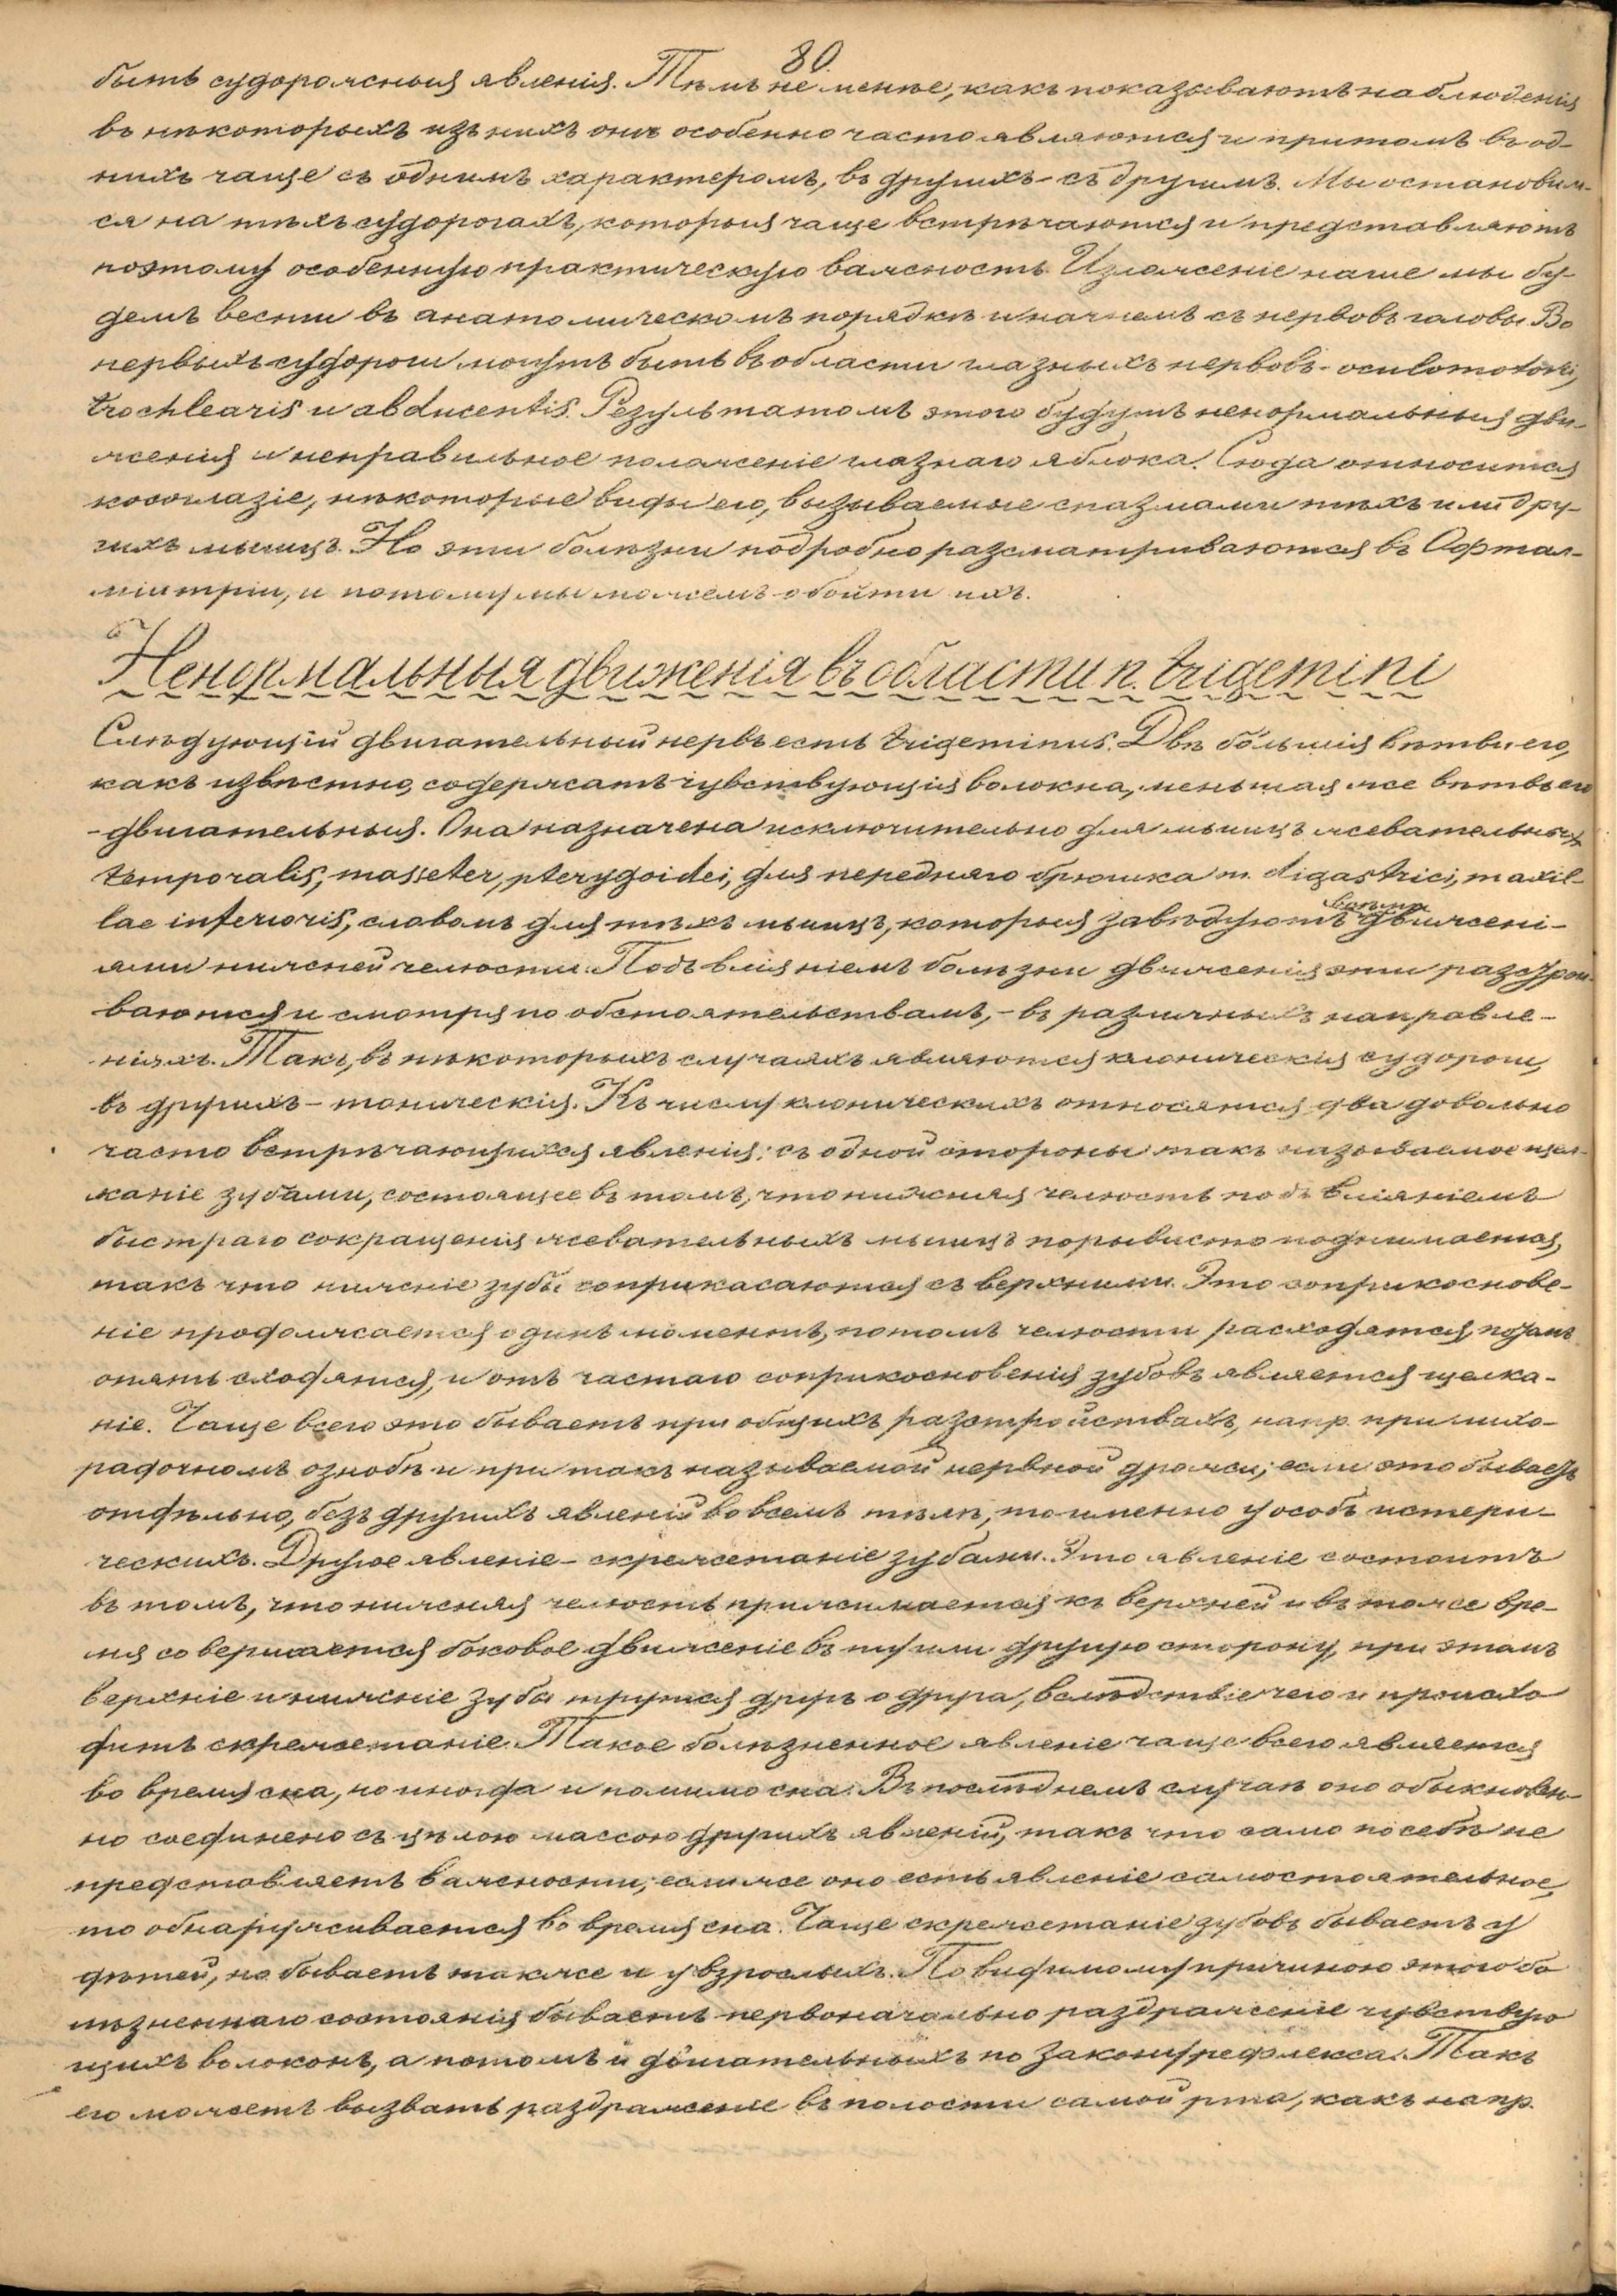 80.
быть судорожныя явленія. Тѣмъ не менѣе, какъ показываютъ наблюденія
въ нѣкоторыхъ изъ нихъ онѣ особенно часто являются и притомъ въ од-
нихъ чаще съ однимъ характеромъ, въ другихъ – съ другимъ. Мы остановим-
ся на тѣхъ судорогахъ, которыя чаще встрѣчаются и представляютъ
поэтому особенную практическую важность. Изложеніе наше мы бу-
демъ вести въ анатомическомъ порядкѣ и начнемъ съ нервовъ головы. Во
первыхъ судороги могутъ быть въ области глазныхъ нервовъ - oculomotorii,
trochlearis и abducentis. Результатомъ этого будутъ ненормальныя дви-
женія и неправильное положеніе глазнаго яблока. Сюда относится
косоглазіе, нѣкоторые виды его, вызываемые спазмами тѣхъ или дру-
гихъ мышцъ. Но эти болѣзни подробно разсматриваются въ Офтал-
міатріи, и потому мы можемъ обойти ихъ.
Ненормальныя движенія въ области n. trigemini
Слѣдующій двигательный нервъ есть trigeminus. Двѣ большія вѣтви его,
какъ извѣстно, содержатъ чувствующія волокна, меньшая же вѣтвь его
- двигательныя. Она назначена исключительно для мышцъ жевательныхъ
temporalis, masseter, pterygoidei, для передняго брюшка m. digastrici, maxil-
lae inferioris, словомъ для тѣхъ мышцъ, которыя завѣдуютъ всѣми движені-
ями нижней челюсти. Подъ вліяніемъ болѣзни движенія эти разстрои-
ваются и смотря по обстоятельствамъ, - въ различныхъ направле-
ніяхъ. Такъ, въ нѣкоторыхъ случаяхъ являются клоническія судороги,
въ другихъ – тоническія. Къ числу клоническихъ относятся два довольно
часто встрѣчающихся явленія: съ одной стороны такъ называемое щел-
каніе зубами, состоящее въ томъ, что нижняя челюсть подъ вліяніемъ
быстраго сокращенія жевательныхъ мышцъ порывисто поднимается,
такъ что нижніе зубы соприкасаются съ верхними. Это соприкоснове-
ніе продолжается одинъ моментъ, потомъ челюсти расходятся, потомъ
опять сходятся, и отъ частаго соприкосновенія зубовъ является щелка-
ніе. Чаще всего это бываетъ при общихъ разстройствахъ, напр. при лихо-
радочномъ ознобѣ и при такъ называемой нервной дрожи; если это бываетъ
отдѣльно, безъ другихъ явленій во всемъ тѣлѣ, то именно у особъ истери-
ческихъ. Другое явленіе – скрежетаніе зубами. Это явленіе состоитъ
въ томъ, что нижняя челюсть прижимается къ верхней и въ тоже вре-
мя совершается боковое движеніе въ ту или другую сторону, при этомъ
верхніе и нижніе зубы трутся другъ о друга, вслѣдствіе чего и происхо
дитъ скрежетаніе. Такое болѣзненное явленіе чаще всего является
во время сна, но иногда и помимо сна. Въ послѣднемъ случаѣ оно обыкновен-
но соединено съ цѣлою массою другихъ явленій, такъ что само по себѣ не
представляетъ важности; если же оно есть явленіе самостоятельное,
то обнаруживается во время сна. Чаще скрежетаніе зубовъ бываетъ у
дѣтей, но бываетъ также и у взрослыхъ. Повидимому причиною этого бо
лѣзненнаго состоянія бываетъ первоначально раздраженіе чувствую
щихъ волоконъ, а потомъ и двигательныхъ по закону рефлекса. Такъ
его можетъ вызвать раздраженіе въ полости самой рта, какъ напр.